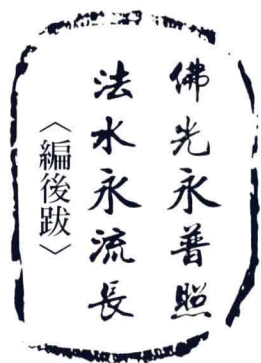 佛光永普照
法水永流長
〈編後跋〉